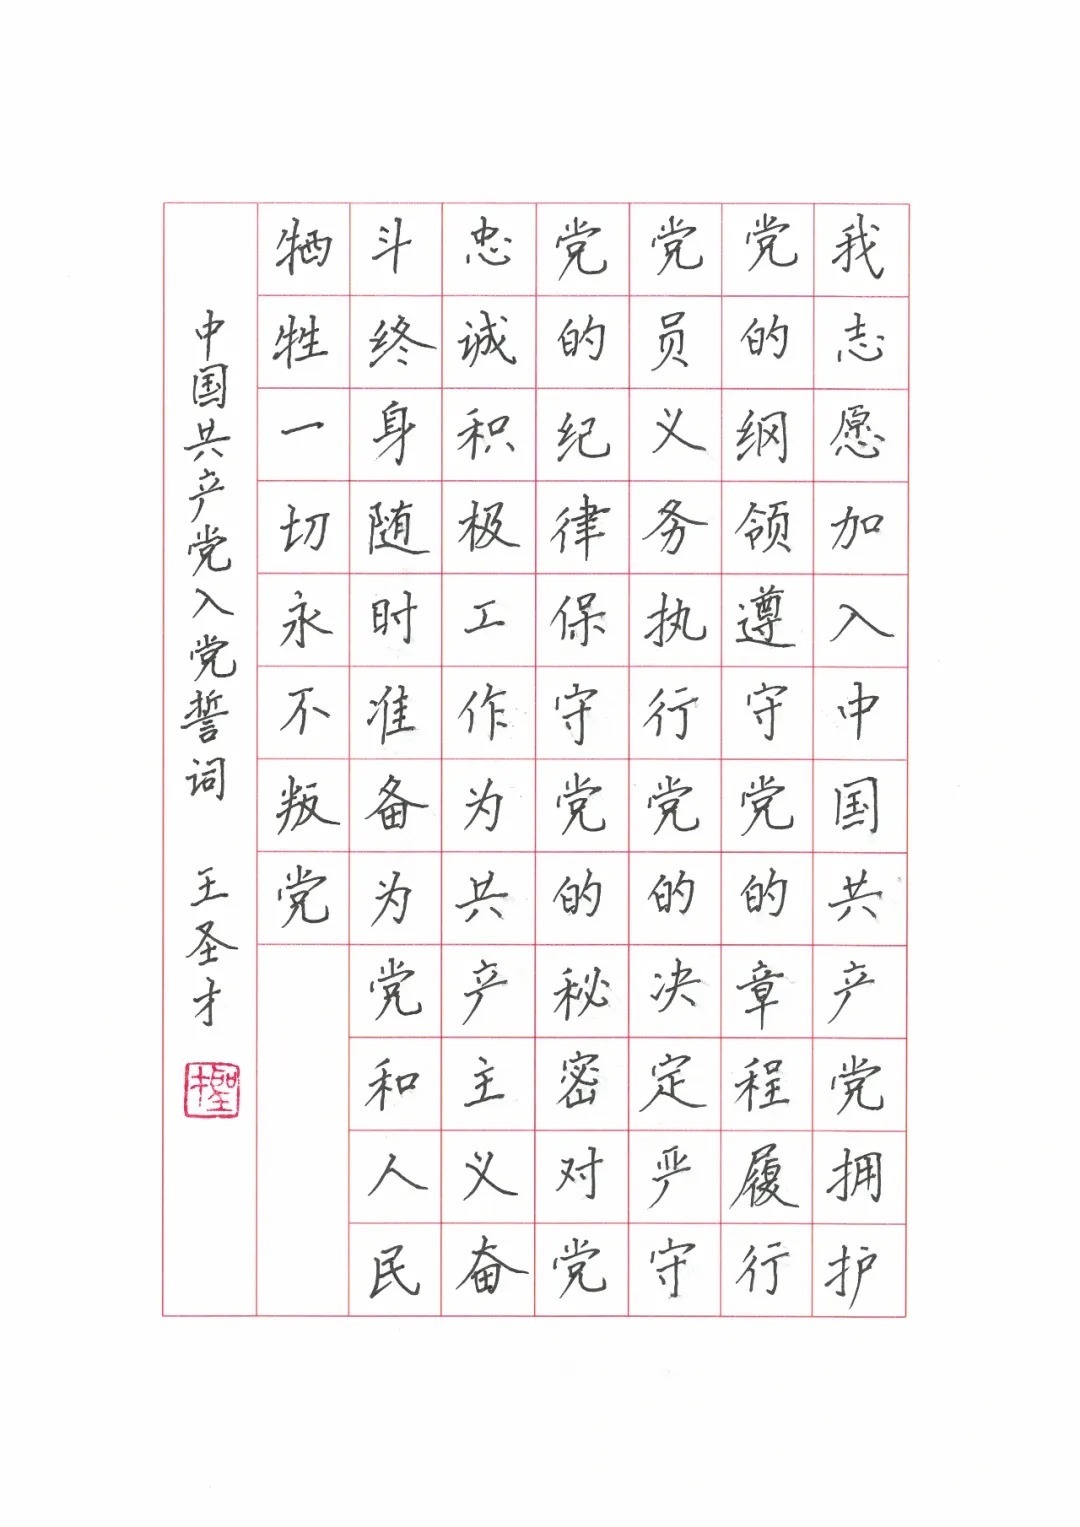 我志愿加入中国共产党拥护
党的纲领遵守党的章程履行
党员义务执行党的决定严守
党的纪律保守党的秘密对党
忠诚积极工作为共产主义奋
斗终身随时准备为党和人民
牺牲一切永不叛党
中国共产党入党誓词 王圣才